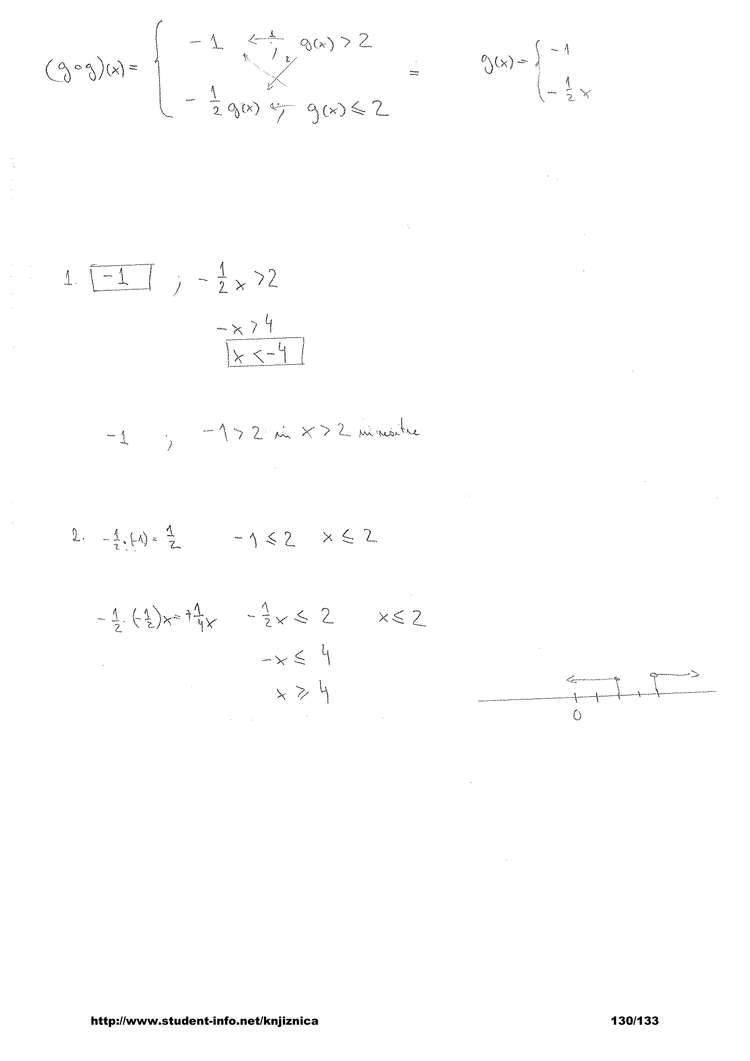 (g∘g)(x) = { -1 ← ; g(x) > 2
- 1/2 g(x) ← ; g(x) ≤ 2 =
g(x) = { -1
- 1/2 x
1. -1 ; - 1/2 x > 2
-x > 4
x < -4
-1 ; -1 > 2 in x > 2
2. -1/2 · (-1) = 1/2 -1 ≤ 2 x ≤ 2
-1/2 · (-1/2)x = +1/4 x -1/2 x ≤ 2 x ≤ 2
-x ≤ 4
x ≥ 4
0
http://www.student-info.net/knjiznica 130/133